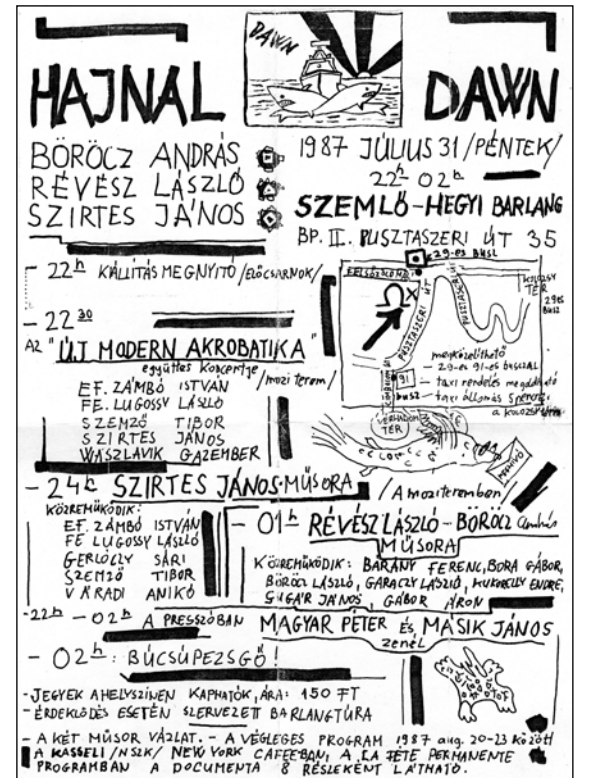 HAJNAL
DAWN
DAWN
BÖRÖCZ ANDRÁS
RÉVÉSZ LÁSZLÓ
SZIRTES JÁNOS
1987 JÚLIUS 31 /PÉNTEK/
22h 02h
SZEMLŐ-HEGYI BARLANG
BP. II. PUSZTASZERI ÚT 35
22h KIÁLLÍTÁS MEGNYITÓ /ELŐCSARNOK/
- 22 30
AZ "ÚJ MODERN AKROBATIKA"
együttes koncertje
/mozi terem/
EF. ZÁMBÓ ISTVÁN
FE. LUGOSSY LÁSZLÓ
SZEMZŐ TIBOR
SZIRTES JÁNOS
WASZLAVIK GAZEMBER
29-es BUSZ
PUSZTASZERI ÚT
PUSZTASZERI ÚT
TÉR
29es
BUSZ
megközelíthető
- 29-es 91-es busszal
- taxi rendelés megoldható
- taxi állomás 5 percre
a kolozsy térn
91
BUSZ
VÉRHALOM
TÉR
MEGHÍVÓ
- 24h SZIRTES JÁNOS MŰSORA
/A moziteremben/
KÖZREMŰKÖDIK:
EF. ZÁMBÓ ISTVÁN
FE LUGOSSY LÁSZLÓ
GERLÓCZY SÁRI
SZEMZŐ TIBOR
VÁRADI ANIKÓ
- 01h RÉVÉSZ LÁSZLÓ - BÖRÖCZ András
MŰSORA
KÖZREMŰKÖDIK: BÁRÁNY FERENC, BORA GÁBOR,
BÖRÖCZ LÁSZLÓ, GARACZY LÁSZLÓ, KUKORELLY ENDRE,
SUGÁR JÁNOS, GÁBOR ÁRON
-22h - 02h A PRESSZÓBAN MAGYAR PÉTER ÉS MÁSIK JÁNOS
zenél
- 02h: BÚCSÚPEZSGŐ!
- JEGYEK A HELYSZÍNEN KAPHATÓK, ÁRA: 150 FT
- ÉRDEKLŐDÉS ESETÉN SZERVEZETT BARLANGTÚRA
- A KÉT MŰSOR VÁZLAT. - A VÉGLEGES PROGRAM 1987 aug. 20-23 között
A KASSELI /NSZK/ NEW YORK CAFÉBAN, A LA FÉTE PERMANENTE
PROGRAMBAN A DOCUMENTA 8 RÉSZEKÉNT LÁTHATÓ.